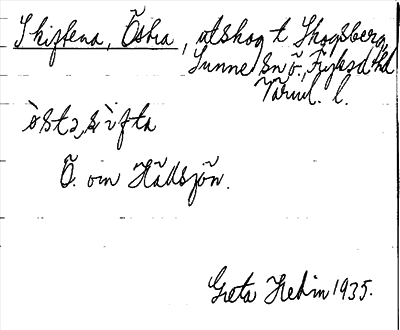 Skiftena, Östra, utskog t Skogsberg,
Sunne sn ö., Fryksd. hd
Värml. l.
òstə,sìfta
Ö. om Hållsjön.
Greta Hedin 1935.